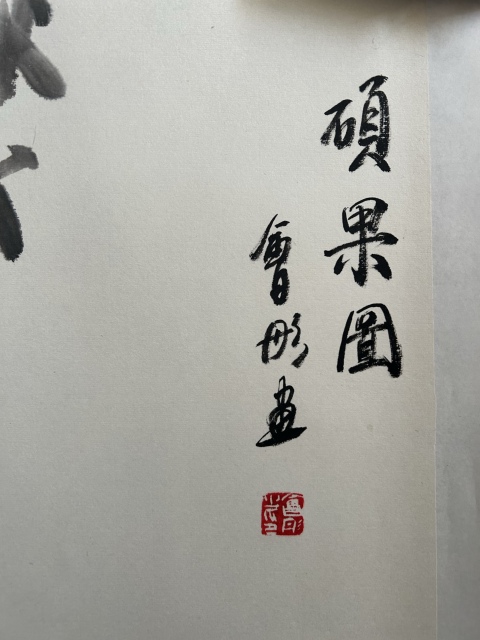 碩果圖
會彤畫